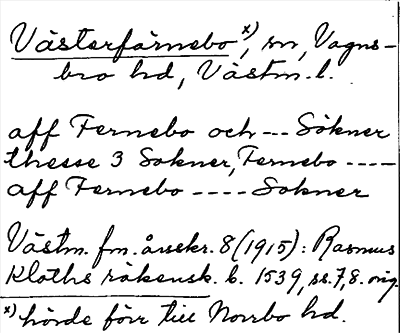 Västerfärnebo x), sn, Vagns-
bro hd, Västm. l.
aff Fernebo och --- Sökner
thesse 3 Sokner, Fernebo ----
aff Fernebo ---- Sokner
Västm. fm. årsskr. 8 (1915): Rasmus
Kloths räkensk. b. 1539, ss. 7, 8. orig.
x) hörde förr till Norrbo hd.